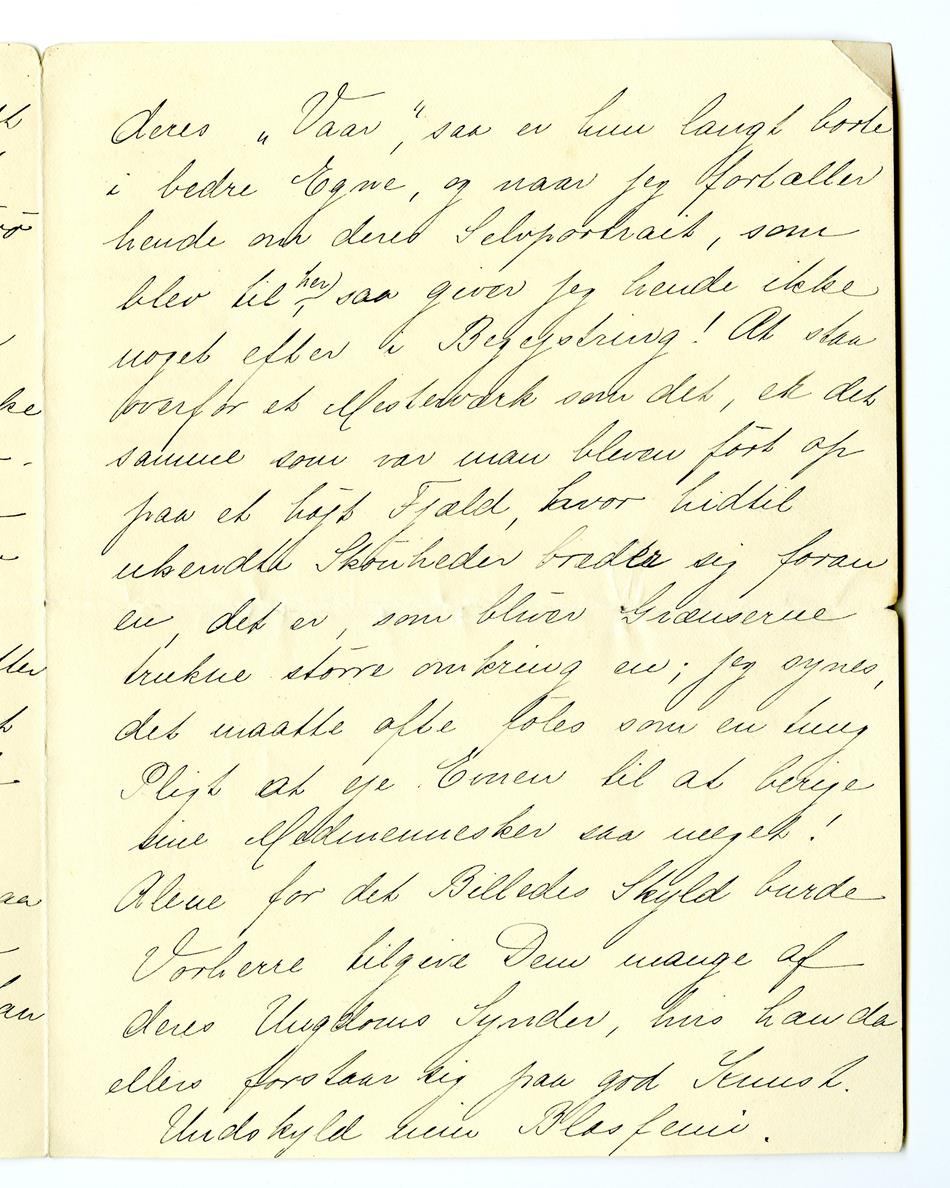 deres „Vaar“, saa er hun langt borte
i bedre Egne, og naar jeg fortæller
hende om deres Selvportrait, som
blev til her, saa giver jeg hende ikke
noget efter i Begejstring! At staa
overfor et Mesterværk som det, er det
samme som var man bleven ført op
paa et højt Fjæld, hvor hidtil
ukendte Skönheder breder sig foran
en, det er, som bliver Grænserne
trukne större omkring en; jeg synes,
det maatte ofte föles som en tung
Pligt at eje Evnen til at berige
sine Medmennesker saa meget!
Alene for det Billedes Skyld burde
Vorherre tilgive Dem mange af
deres Ungdoms Synder, hvis han da
ellers forstaar sig paa god Kunst.
Undskyld min Blasfemi.